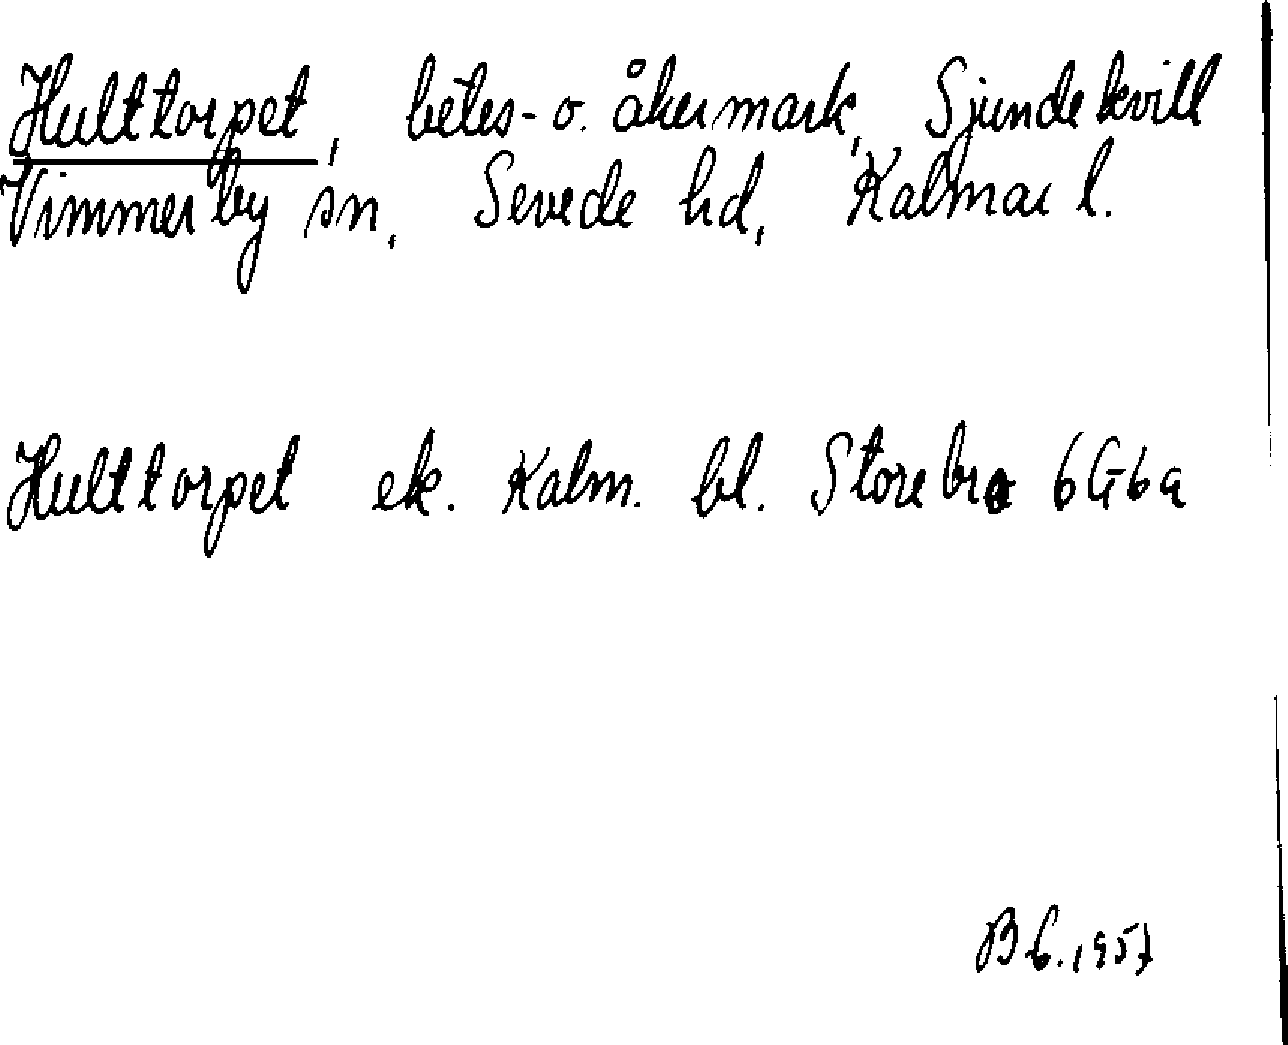 Hulttorpet, betes- o. åkermark, Sjundekvill
Vimmerby sn, Sevede hd, Kalmar l.
Hulttorpet ek. Kalm. bl. Storebro 6G6a
1957